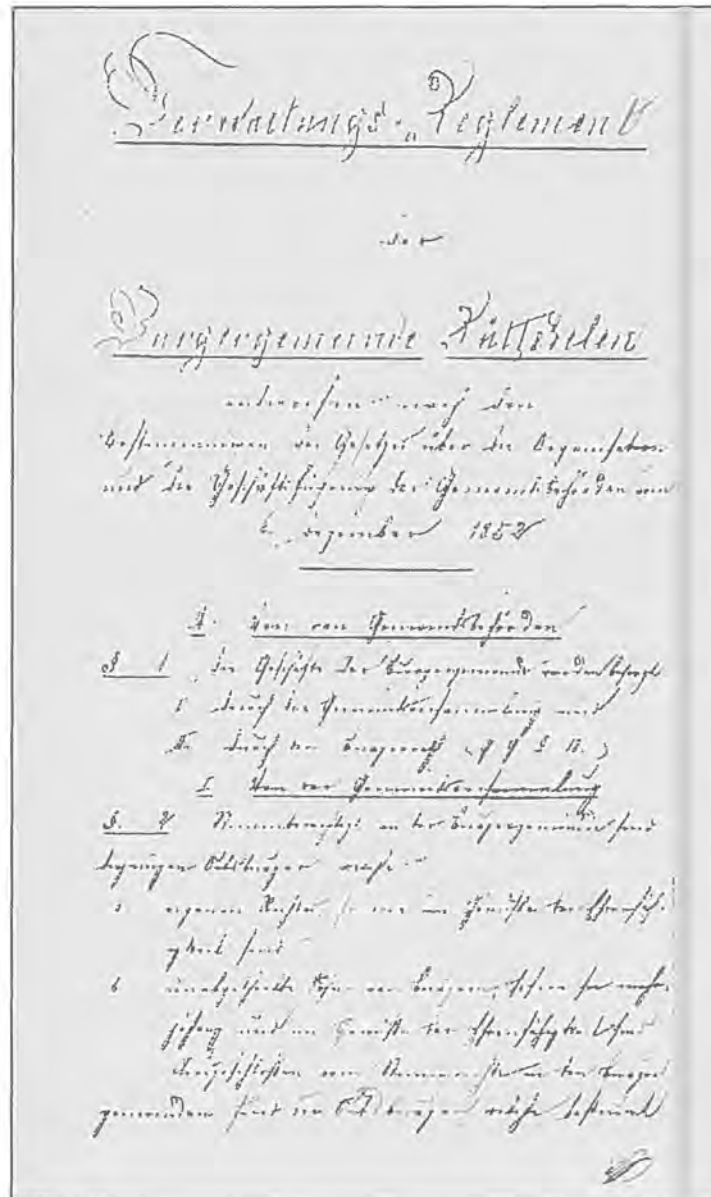 Verwaltungs-Reglement
der
Burgergemeinde Rütschelen
entworfen nach den
Bestimmungen des Gesetzes über die Organisation
und die Geschäftsführung der Gemeindsbehörden vom
6. Dezember 1852
A. Von den Gemeindsbehörden
§ 1 die Geschäfte der Burgergemeinde werden besorgt
I. durch die Gemeindsversammlung und
II. durch den Burgerrath (§
I. Von der Gemeindsversammlung
§. 2 Stimmberechtigt an der Burgergemeinde sind
diejenigen Ortsburger welche
a. eigenen Rechtes im Genusse der Ehrenfäh-
igkeit sind
b. Söhne von Burgern, sofern sie mehr-
jährig und im Genusse der Ehrenfähigkeit sind
Ausgeschlossen vom Stimmrecht an den Burger-
gemeinden sind die Ortsburger welche